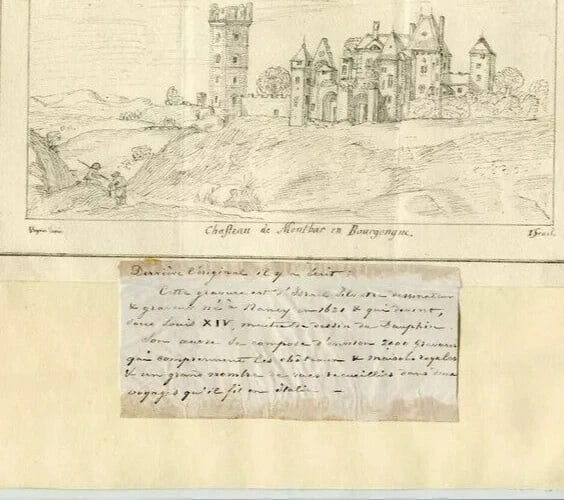 Chasteau de Montbar en Bourgongne.
Israel.
Derrière l'original il y a écrit :
Cette gravure est d'Israel Silvestre dessinateur
& graveur né à Nancy en 1621 & qui devint,
sous Louis XIV, maitre de dessin du Dauphin.
Son œuvre se compose d'environ 2000 gravures
qui comprennent les châteaux & maisons royales
& un grand nombre de vues recueillies dans deux
voyages qu'il fit en italie. —